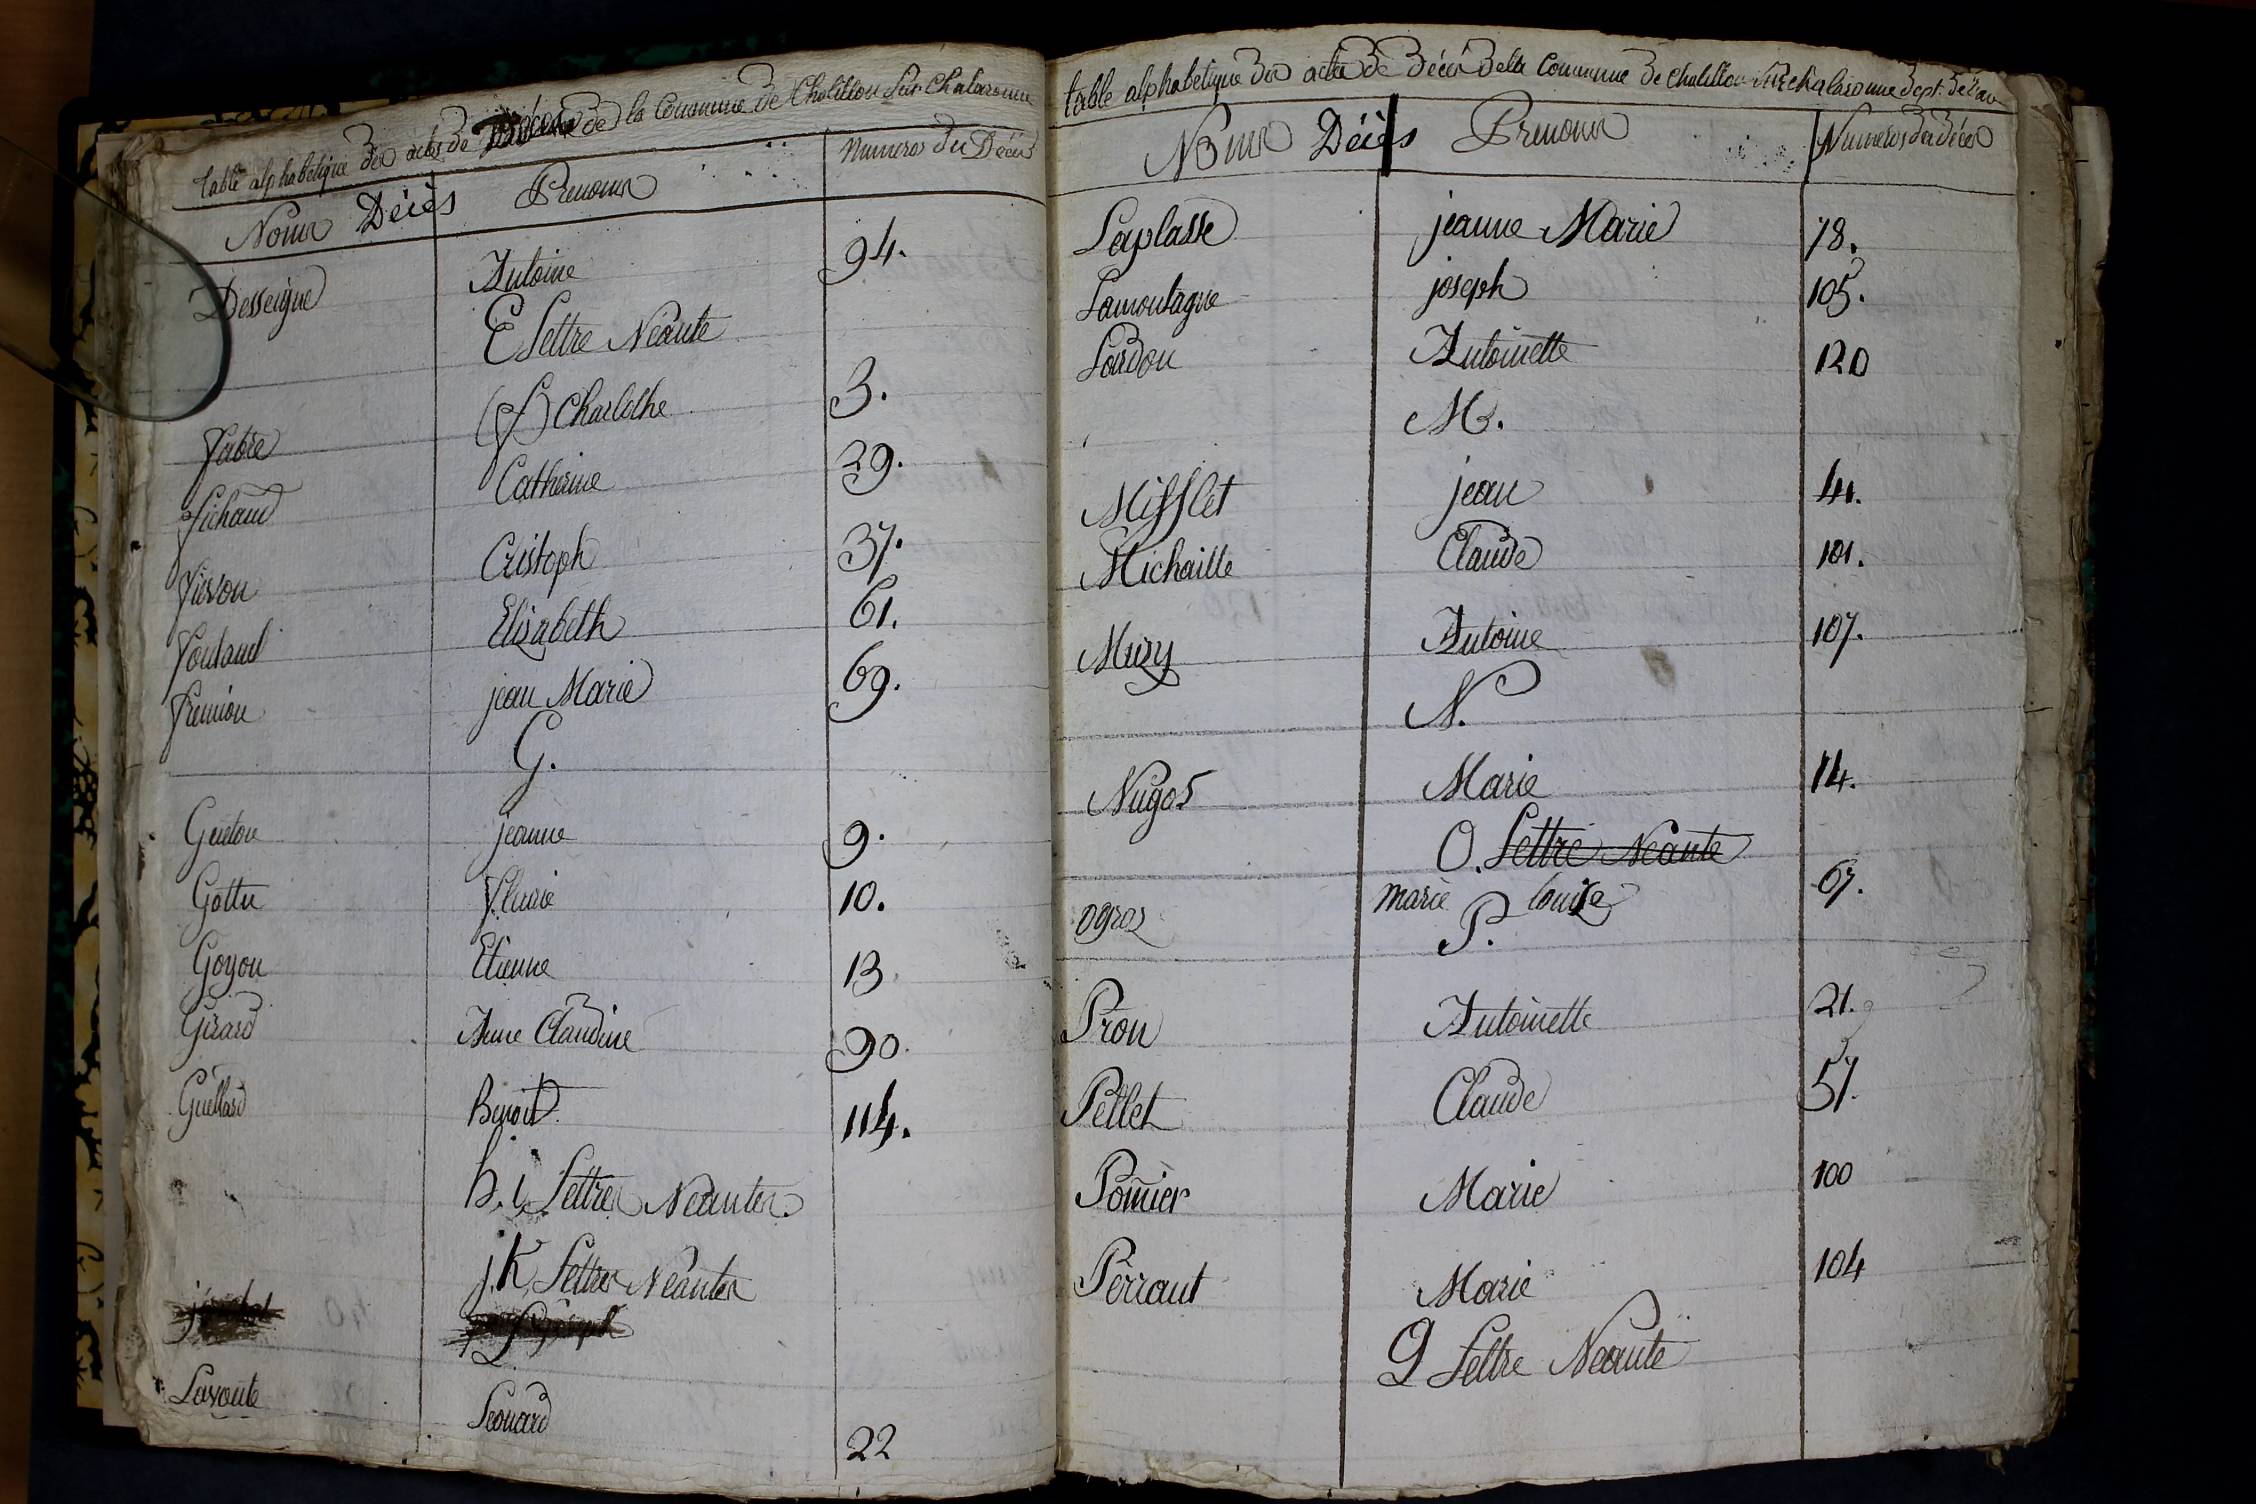 table alphabetique des actes de de la Commune de Chatillon sur Chalaronne
Noms Décès Prenoms Numeros du Décès
Desseigne Antoine 94.
E Lettre Néante
(f)
Fabre Charlothe 3.
Fichaud Catherine 29.
Cristoph 37.
Elisabeth 61.
jean Marie 69.
G.
jeanne 9.
10.
Goyon Etienne 13
Girard Anne Claudine 90.
Guellard Benoit 114.
h. i Lettres Néantes.
j. K Lettres Néantes
L
Leonard 22
table alphabetique des actes de décès de la Commune de Chatillon sur chalaronne dept. de l'ain
Noms Décès Prenoms Numeros des décès
Laplasse jeanne Marie 78.
Lamontagne joseph 105.
Antoinette 120
M.
Mifflet jean 41.
Michaille Claude 101.
Antoine 107.
N.
Marie 14.
O. Lettre Néante
ogroz marie louise 67.
P.
Pron Antoinette 21.
Pellet Claude 57.
Pomier Marie 100
Perraut Marie 104
Q Lettre Néante